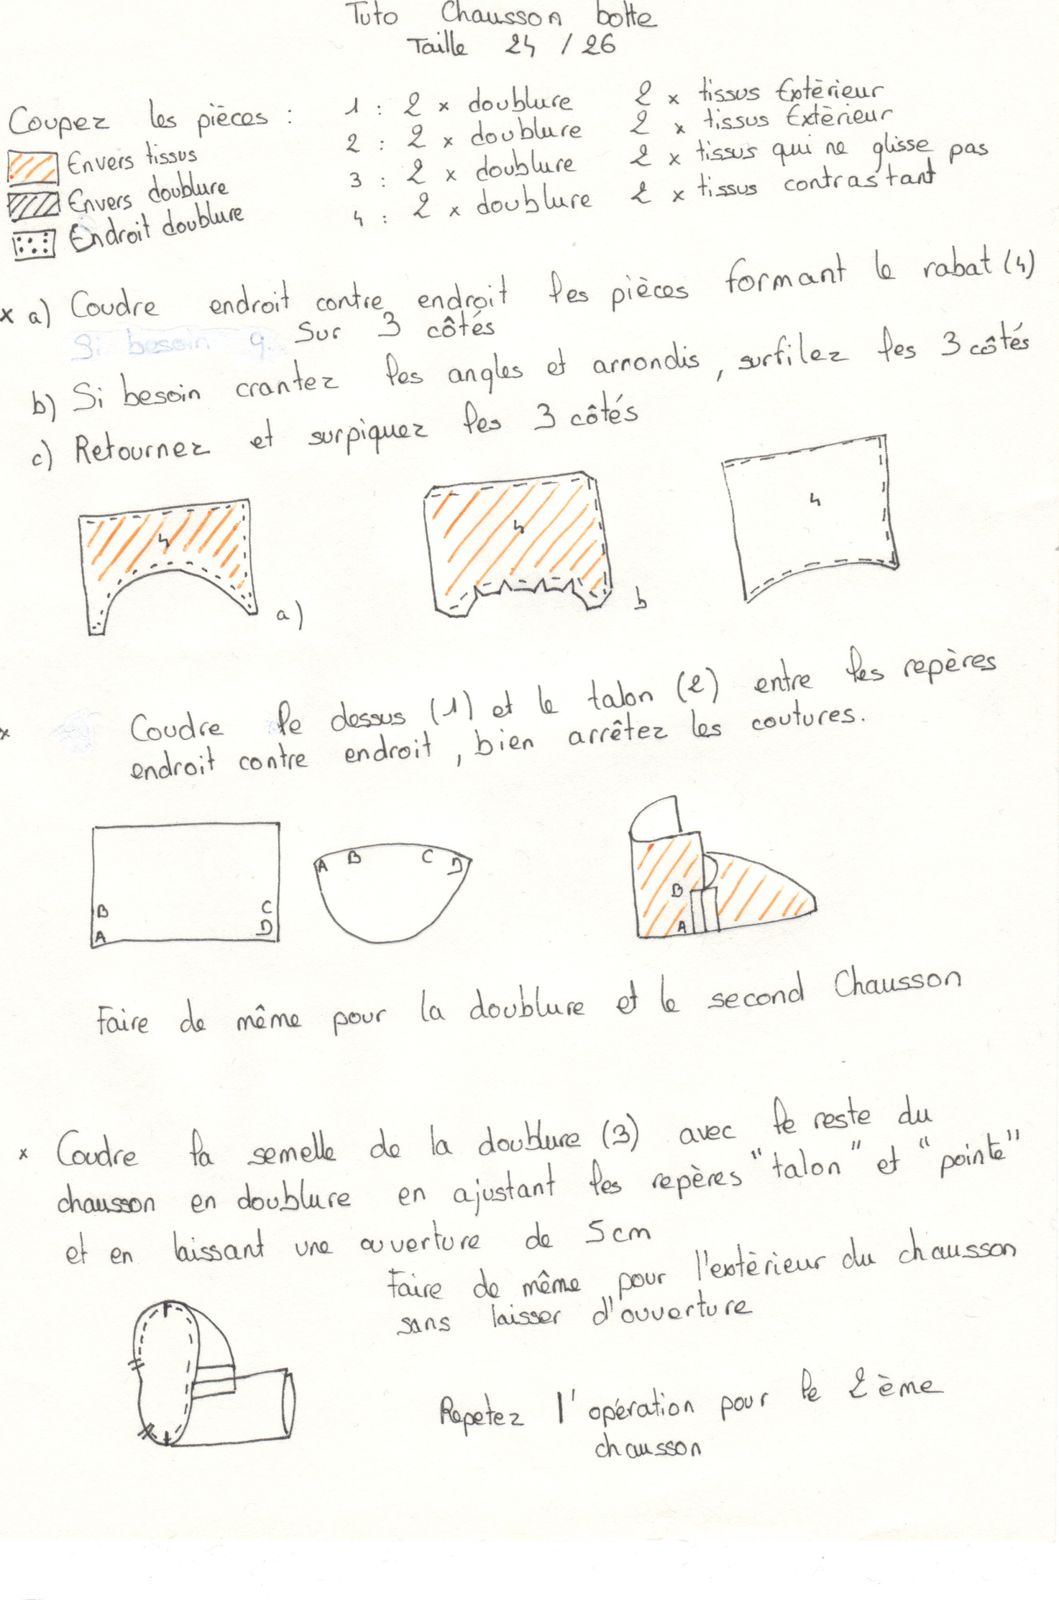 Tuto Chausson botte
Taille 24 / 26
Coupez les pièces :
1 : 2 x doublure 2 x tissus Extèrieur
2 : 2 x doublure 2 x tissus Extèrieur
3 : 2 x doublure 2 x tissus qui ne glisse pas
4 : 2 x doublure 2 x tissus contrastant
Envers tissus
Envers doublure
Endroit doublure
x a) Coudre endroit contre endroit les pièces formant le rabat (4)
Si besoin q Sur 3 côtés
b) Si besoin crantez les angles et arrondis, surfilez les 3 côtés
c) Retournez et surpiquez les 3 côtés
4
a)
4
b
4
x Coudre le dessus (1) et le talon (2) entre les repères
endroit contre endroit, bien arrêtez les coutures.
B C
A D
A B C D
B
A
Faire de même pour la doublure et le second Chausson
x Coudre la semelle de la doublure (3) avec le reste du
chausson en doublure en ajustant les repères "talon" et "pointe"
et en laissant une ouverture de 5cm
Faire de même pour l'extèrieur du chausson
sans laisser d'ouverture
Repetez l'opération pour le 2ème
chausson